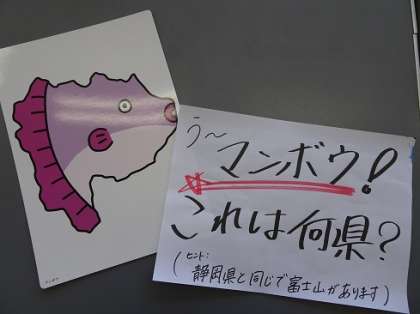 う〜
マンボウ!
これは何県?
(ヒント:
静岡県と同じで富士山があります)